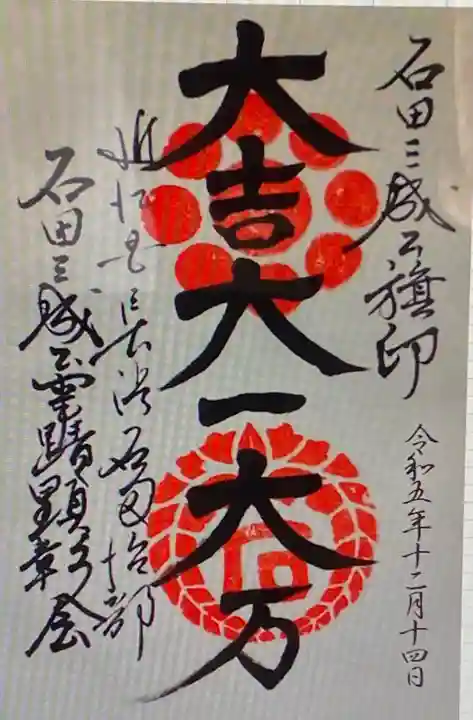 石田三成公旗印
令和五年十二月十四日
大吉大一大万
近江国長浜石田治部
石田三成公霊蹟顕彰会
石